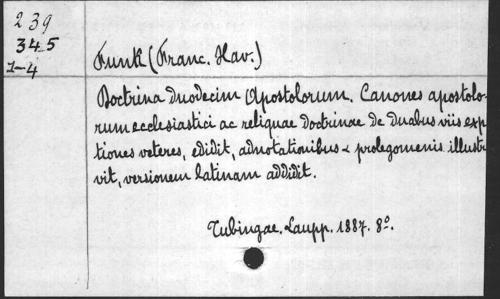 239
345
1-4
Funk (Franc. Xav.)
Doctrina duodecim Apostolorum. Canones apostolo-
rum ecclesiastici ac reliquae doctrinae de duabus viis exp
tiones veteres, edidit, adnotationibus & prolegomenis illust
vit, versionem latinam addidit.
Tubingae. Laupp. 1887. 8º.